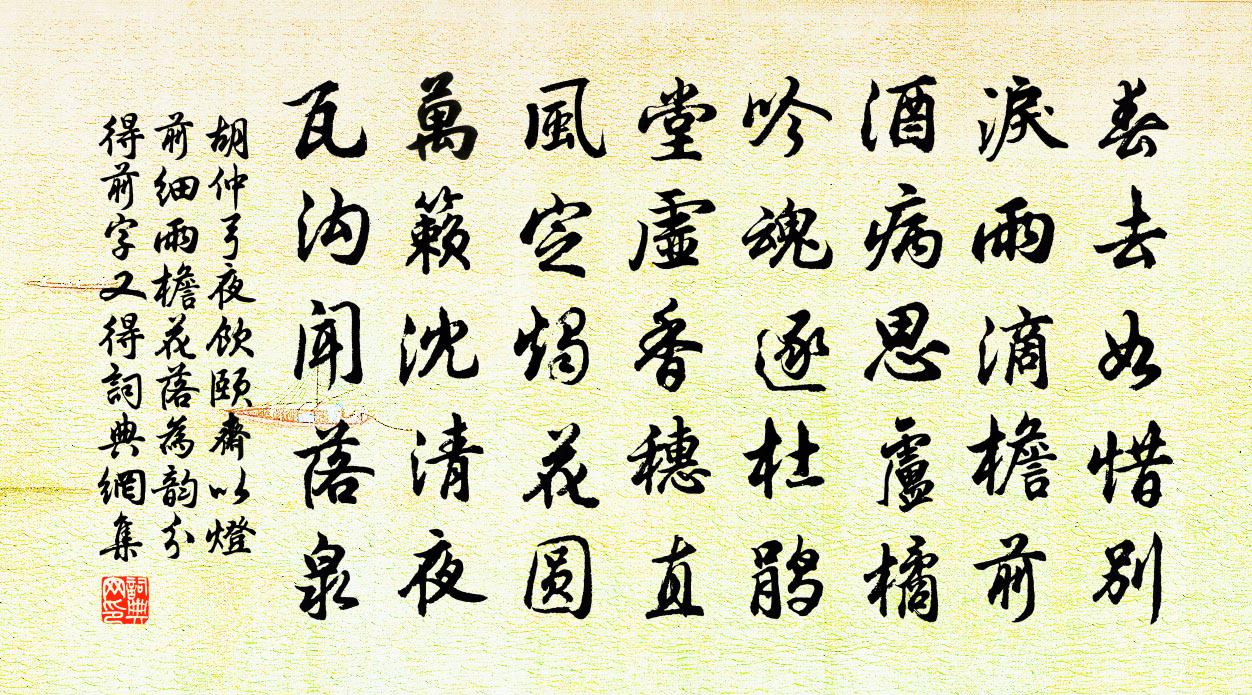 春去如惜別
淚雨滴檐前
酒病思盧橘
吟魂逐杜鹃
堂虛香穗直
風定燭花圆
萬籟沈清夜
瓦沟闻落泉
胡仲弓夜飲頤齋以燈
前細雨檐花落為韵分
得前字又得詞典網集
詞典
网印